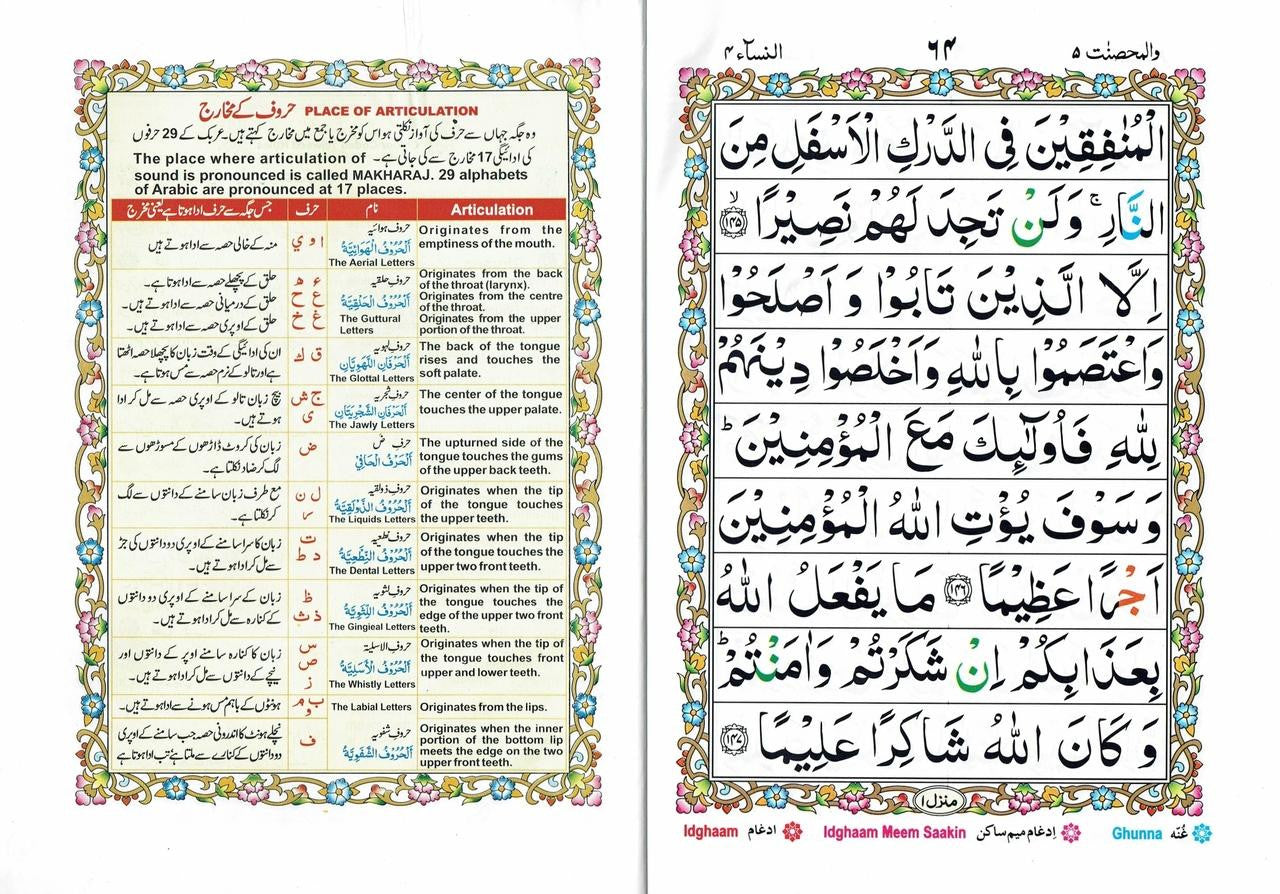 حروف کے مخارج PLACE OF ARTICULATION
وہ جگہ جہاں سے حرف کی آواز نکلتی ہو اس کو مخرج یا جمع میں مخارج کہتے ہیں۔ عربک کے 29 حرفوں
کی ادائیگی 17 مخارج سے کی جاتی ہے۔ The place where articulation of
sound is pronounced is called MAKHARAJ. 29 alphabets
of Arabic are pronounced at 17 places.
جس جگہ سے حرف ادا ہوتا ہے یعنی مخرج حرف نام Articulation
منہ کے خالی حصہ سے ادا ہوتے ہیں
ا و ی
حروف ہوائیہ
اَلْحُرُوْفُ الْهَوَائِيَّةُ
The Aerial Letters
Originates from the
emptiness of the mouth.
حلق کے پچھلے حصہ سے ادا ہوتا ہے۔
حلق کے درمیانی حصہ سے ادا ہوتے ہیں۔
حلق کے اوپری حصہ سے ادا ہوتے ہیں۔
ء ھ
ع ح
غ خ
حروف حلقیہ
اَلْحُرُوْفُ الْحَلْقِيَّةُ
The Guttural
Letters
Originates from the back
of the throat (larynx).
Originates from the centre
of the throat.
Originates from the upper
portion of the throat.
ان کی ادائیگی کے وقت زبان کا پچھلا حصہ اٹھتا
ہے اور تالو کے نرم حصہ سے مس ہوتا ہے۔
ق ك
حروف لہویہ
اَلْحَرْفَانِ اللَّهْوِيَّانِ
The Glottal Letters
The back of the tongue
rises and touches the
soft palate.
بیچ زبان تالو کے اوپری حصہ سے مل کر ادا
ہوتے ہیں۔
ج ش
ی
حروف شجریہ
اَلْحَرْفَانِ الشَّجْرِيَّتَانِ
The Jawly Letters
The center of the tongue
touches the upper palate.
زبان کی کروٹ داڑھوں کے مسوڑھوں سے
لگ کر ضاد نکلتا ہے۔
ض
حرف ضٌ
اَلْحَرْفُ الْحَافِيْ
The upturned side of the
tongue touches the gums
of the upper back teeth.
مع طرف زبان سامنے کے دانتوں سے لگ
کر نکلتا ہے۔
ل ن
ر
حروف ذولقیہ
اَلْحُرُوْفُ الذَّوْلَقِيَّةُ
The Liquids Letters
Originates when the tip
of the tongue touches
the upper teeth.
زبان کا سرا سامنے کے اوپری دو دانتوں کی جڑ
سے مل کر ادا ہوتے ہیں۔
ت
د ط
حروف نطعیہ
اَلْحُرُوْفُ النِّطْعِيَّةُ
The Dental Letters
Originates when the tip
of the tongue touches the
upper two front teeth.
زبان کے سرا سامنے کے اوپری دو دانتوں
کے کنارہ سے مل کر ادا ہوتے ہیں۔
ظ
ذ ث
حروف لثویہ
اَلْحُرُوْفُ اللِّثَوِيَّةُ
The Gingieal Letters
Originates when the tip of
the tongue touches the
edge of the upper two front
teeth.
زبان کا کنارہ سامنے اوپر کے دانتوں اور
نیچے کے دانتوں سے مل کر ادا ہوتے ہیں۔
س
ص
ز
حروف الاسلیۃ
اَلْحُرُوْفُ الْأَسَلِيَّةُ
The Whistly Letters
Originates when the tip of
the tongue touches front
upper and lower teeth.
ہونٹوں کے باہم مس ہونے سے ادا ہوتے ہیں۔
ب م
و
The Labial Letters
Originates from the lips.
نچلے ہونٹ کا اندرونی حصہ جب سامنے کے اوپری
دو دانتوں کے کنارے سے ملتا ہے تب ادا ہوتا ہے
ف
حروف شفویہ
اَلْحُرُوْفُ الشَّفَوِيَّةُ
Originates when the inner
portion of the bottom lip
meets the edge on the two
upper front teeth.
والمحصنٰت ۵ ۶۴ النساۤء ۴
الْمُنٰفِقِيْنَ فِى الدَّرْكِ الْاَسْفَلِ مِنَ
النَّارِ ۚ وَلَنْ تَجِدَ لَهُمْ نَصِيْرًا ۙ‏﴿۱۴۵﴾
اِلَّا الَّذِيْنَ تَابُوْا وَ اَصْلَحُوْا
وَاعْتَصَمُوْا بِاللّٰهِ وَاَخْلَصُوْا دِيْنَهُمْ
لِلّٰهِ فَاُولٰٓئِكَ مَعَ الْمُؤْمِنِيْنَ ؕ
وَسَوْفَ يُؤْتِ اللّٰهُ الْمُؤْمِنِيْنَ
اَجْرًا عَظِيْمًا ﴿۱۴۶﴾ مَا يَفْعَلُ اللّٰهُ
بِعَذَابِكُمْ اِنْ شَكَرْتُمْ وَاٰمَنْتُمْ ؕ
وَ كَانَ اللّٰهُ شَاكِرًا عَلِيْمًا ﴿۱۴۷﴾
منزل ۱
Idghaam ادغام Idghaam Meem Saakin اِدغام میم ساکن Ghunna غُنّه